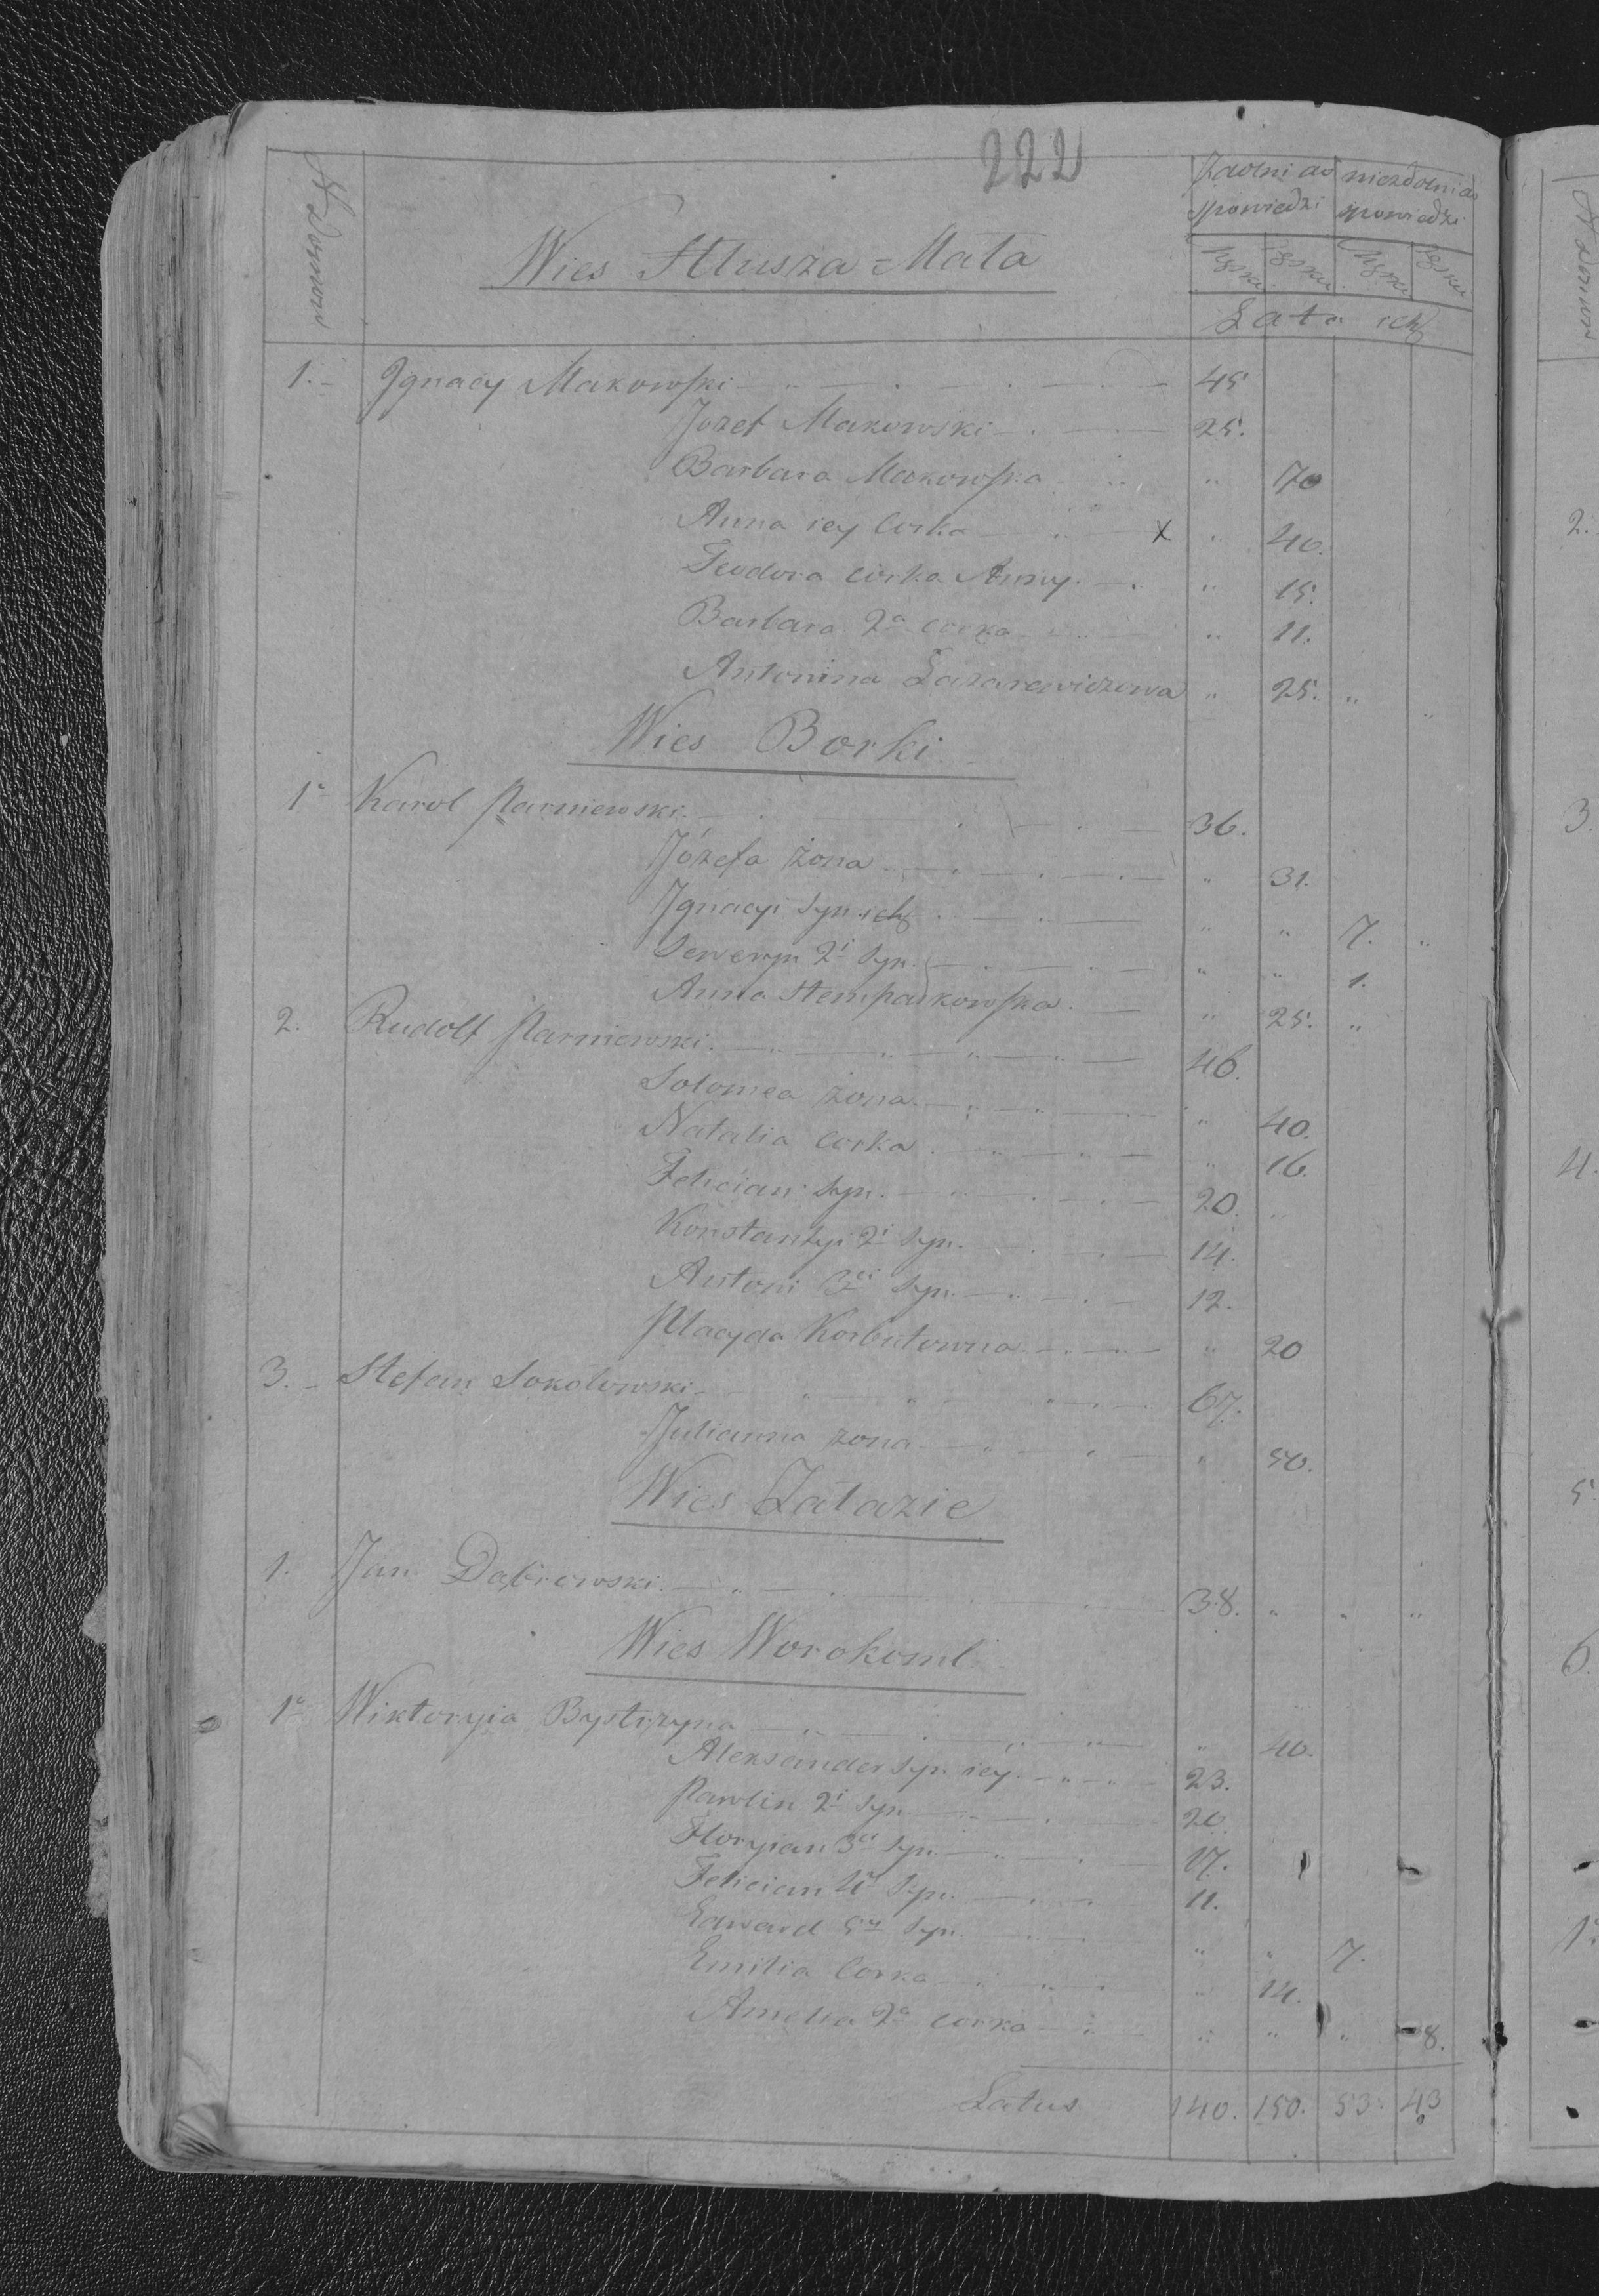 222
N Domow
Zdolni do spowiedzi
niezdolni do spowiedzi
Męska Żęska Męska Żęska
Lata ich
Wies Hłusza-Mała
1. Ignacy Makowski 45
Jozef Makowski 25.
Barbara Makowska " 70
Anna iey Corka X " 40.
Teodora corka Anny " 15.
Barbara 2a corka " 11.
Antonina Lazarewiczowa " 25. " "
Wies Borki
1a Karol Parniewski 36.
Józefa żona " 31.
Ignacyi Syn ich " " 7. "
Seweryn 2i Syn " " 1.
Anna Stempadkowska " 25. "
2. Rudolf Parniewski 46.
Solomea żona " 40.
Natalia corka " 16.
Felician Syn 20. "
Konstantyi 2i Syn 14.
Antoni 3ci Syn 12.
Placyda Korbutowna " 20
3. Stefan Sokolowski 67.
Julianna żona " 50.
Wies Załazie
1. Jan Dabrowski 38. " " "
WiesWorokoml
1a Wiktoryia Bystrzyna " 40.
Aleksander syn iey 23.
Pawlin 2i Syn 20.
Floryian 3ci Syn 17.
Felician 4y Syn 11.
Edward 5ty Syn " " 7.
Emilia Corka " 14.
Amelia 2a corka " " " 8.
Latus 140. 150. 53. 43